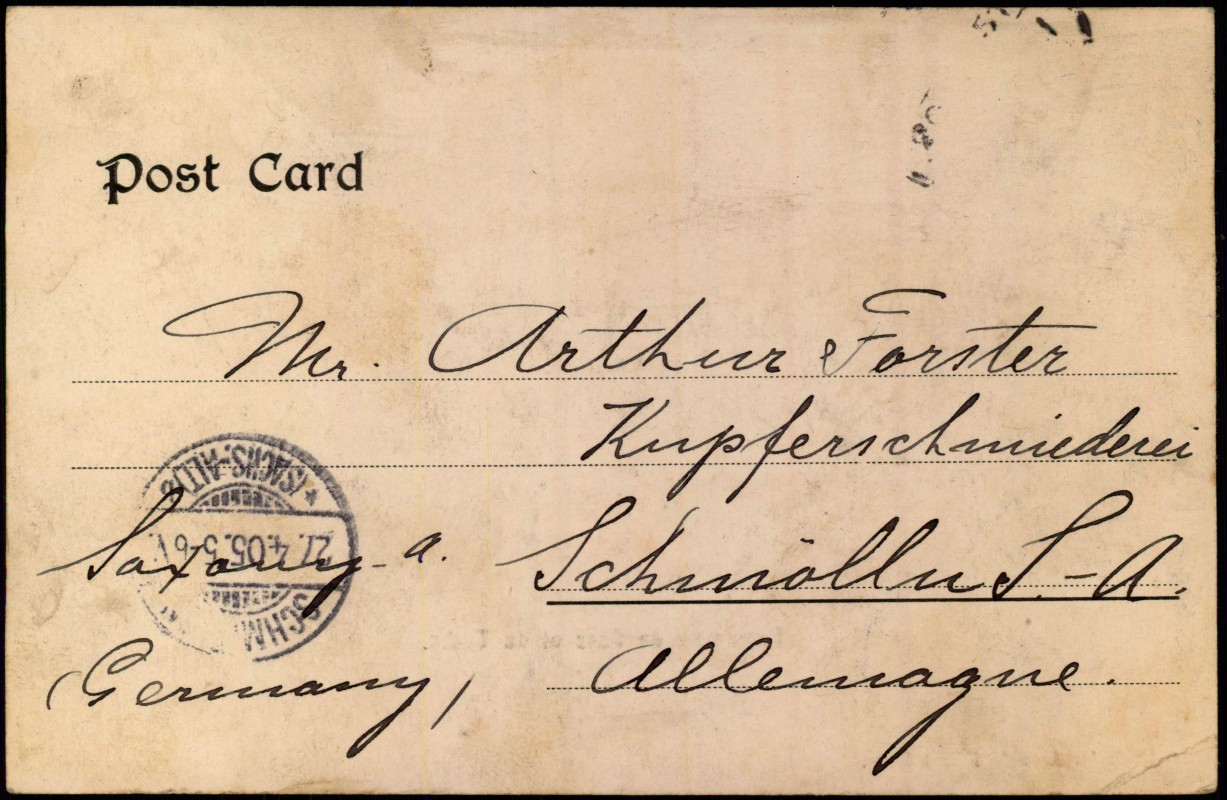 Post Card
Mr. Arthur Forster
Kupferschmiederei
Saxony-a. Schmölln S.-A.
(Germany) Allemagne.
* (SACHS.-ALTB
27. 4.05. 5-6 V.
SCHM